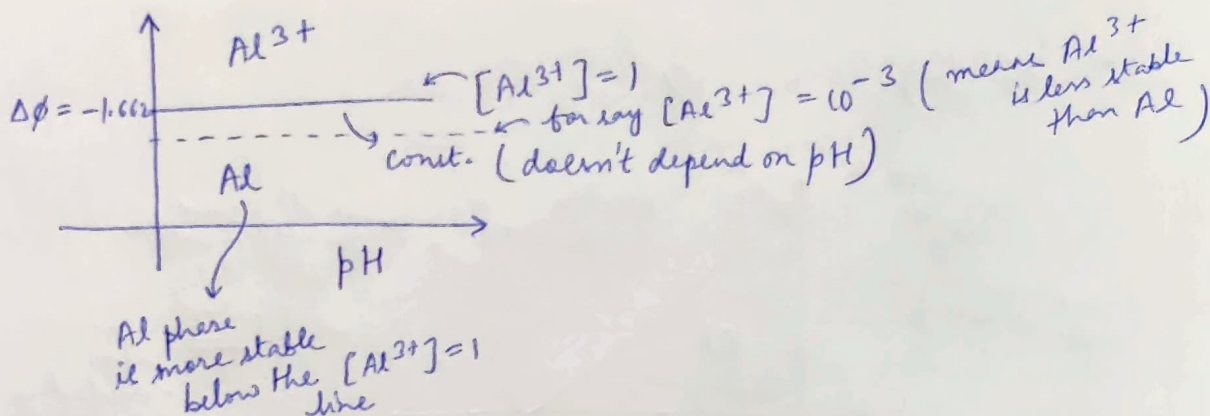 Al³⁺
Δϕ = -1.662
[Al³⁺] = 1
for say [Al³⁺] = 10⁻³ ( means Al³⁺
is less stable
than Al )
const. ( doesn't depend on pH )
Al
pH
Al phase
is more stable
below the [Al³⁺] = 1
line